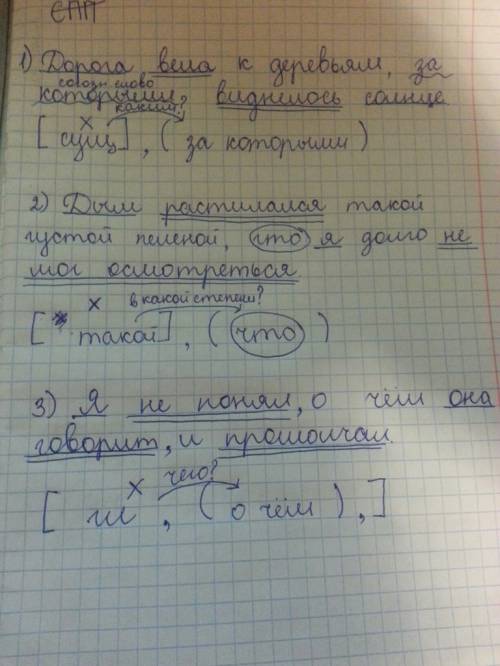 СПП
1) Дорога вела к деревьям, за
союзн. слово
которыми, виднелось солнце
х каким?
[ сущ ] , ( за которыми )
2) Дым растилался такой
густой пеленой, что я долго не
мог осмотреться.
х в какой степени?
[ такой ] , ( что )
3) Я не понял, о чём она
говорит, и промолчал.
х чего?
[ гл , ( о чём ) , ]